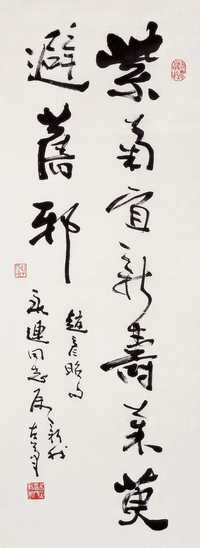 紫菊宜新壽茱萸
避舊邪
趙彥昭句
永連同志屬